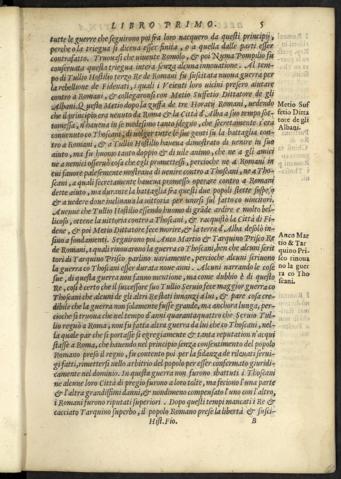 LIBRO PRIMO. 5
tutte le guerre che seguirono poi fra loro nacquero da questi principij,
perche o la triegua si dicena esser finita, o a quella dalle parti esser
contrafatto. Truouasi che viuente Romolo, & poi Numa Pompilio fu
conseruata questa triegua intera senza alcuna innouatione. Al tem-
po di Tullio Hostilio terzo Re de Romani fu suscitata nuoua guerra per
la rebellione de Fidenati, i quali i Veienti loro uicini presero aiutare
contro a Romani, & collegaronsi con Metio Suffetio Dittatore de gli
Albani. Questo Metio dopo la zuffa de tre Horatij Romani, uedendo
che il principio era uenuto da Roma & la Città d'Alba a suo tempo sot-
tomessa, n'haueua in se medesimo tanto sdegno, che secretamente s'era
conuenuto co Thoscani, di uolger tutte le sue genti su la battaglia con-
tro a Romani, & a Tullio Hostilio haueua dimostrato di uenire in suo
aiuto, ma fu huomo tanto doppio & di uile animo, che ne a gli amici
ne a nemici osseruò cosa che egli promettesse, percioche ne a Romani in
cui fauore palesemente mostraua di uenire contro a Thoscani, ne a Tho-
scani, a quali secretamente haueua promesso operare contro a Romani
dette aiuto, ma durante la battaglia fra questi duo popoli stette sospeso
& a uedere doue inclinaua la uittoria per unirsi sul fatto co uincitori.
Auenne che Tullio Hostilio essendo huomo di grāde ardire e molto bel-
licoso, ottene la uittoria contro a Thoscani, & racquistò la Città di Fi-
dene, & poi Metio Dittatore fece morire, & la terra d'Alba desolò in-
sino a fondamenti. Seguirono poi Anco Martio & Tarquino Prisco Re
de Romani, a quali rinouarono la guerra co Thoscani, ben che alcuni scrit
tori di Tarquino Prisco parlino uariamente, percioche alcuni scriuono
la guerra co Thoscani esser durata noue anni. Alcuni narrando le cose
sue, di questa guerra non fanno mentione, ma come dubbio è di questo
Re, così è certo che il successore suo Tullio Seruio fece maggior guerra co
Thoscani che alcuni de gli altri Re stati innanzi a lui, & pare cosa cre-
dibile che la guerra non solamente fusse grande, ma anchora lunga, per-
cioche si truoua che nel tempo d'anni quarantaquattro che Seruio Tul-
lio regnò a Roma, non fu fatta altra guerra da lui che co Thoscani, nel-
la quale par che si portasse sì egregiamente & tanta reputation n'acqui
stasse a Roma, che hauendo nel principio senza consentimento del popolo
Romano preso il regno, fu contento poi per la fidanza de rileuati serui-
gi fatti, rimettersi nello arbitrio del popolo per esser confermato giuridi-
camente nel dominio. In questa guerra non furono sbattuti i Thoscani
ne alcune loro Città di pregio furono a loro tolte, ma feciono l'una parte
& l'altra grandissimi danni, & nondimeno compensato l'uno con l'altro,
i Romani furono riputati superiori. Dopo questi tempi mancati i Re &
cacciato Tarquino superbo, il popolo Romano prese la libertà & susci-
Hist. Fio. B
Metio Suf
fetio Ditta
tore de gli
Albani.
Anco Mar
tio & Tar
quino Pri-
sco rinoua
no la guer
ra co Tho
scani.